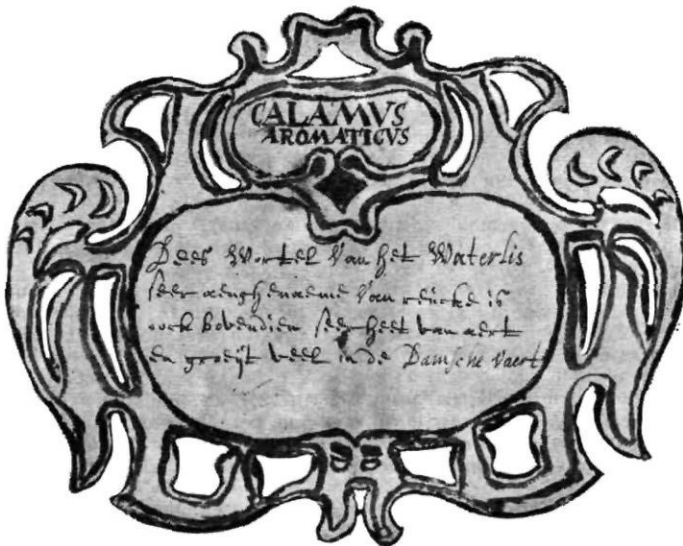 CALAMVS
AROMATICVS
Dees Wortel Van het Waterlis
seer aenghenaeme Van reucke is
oock bovendien seer heet van aert
en groeijt veel in de Damsche Vaert